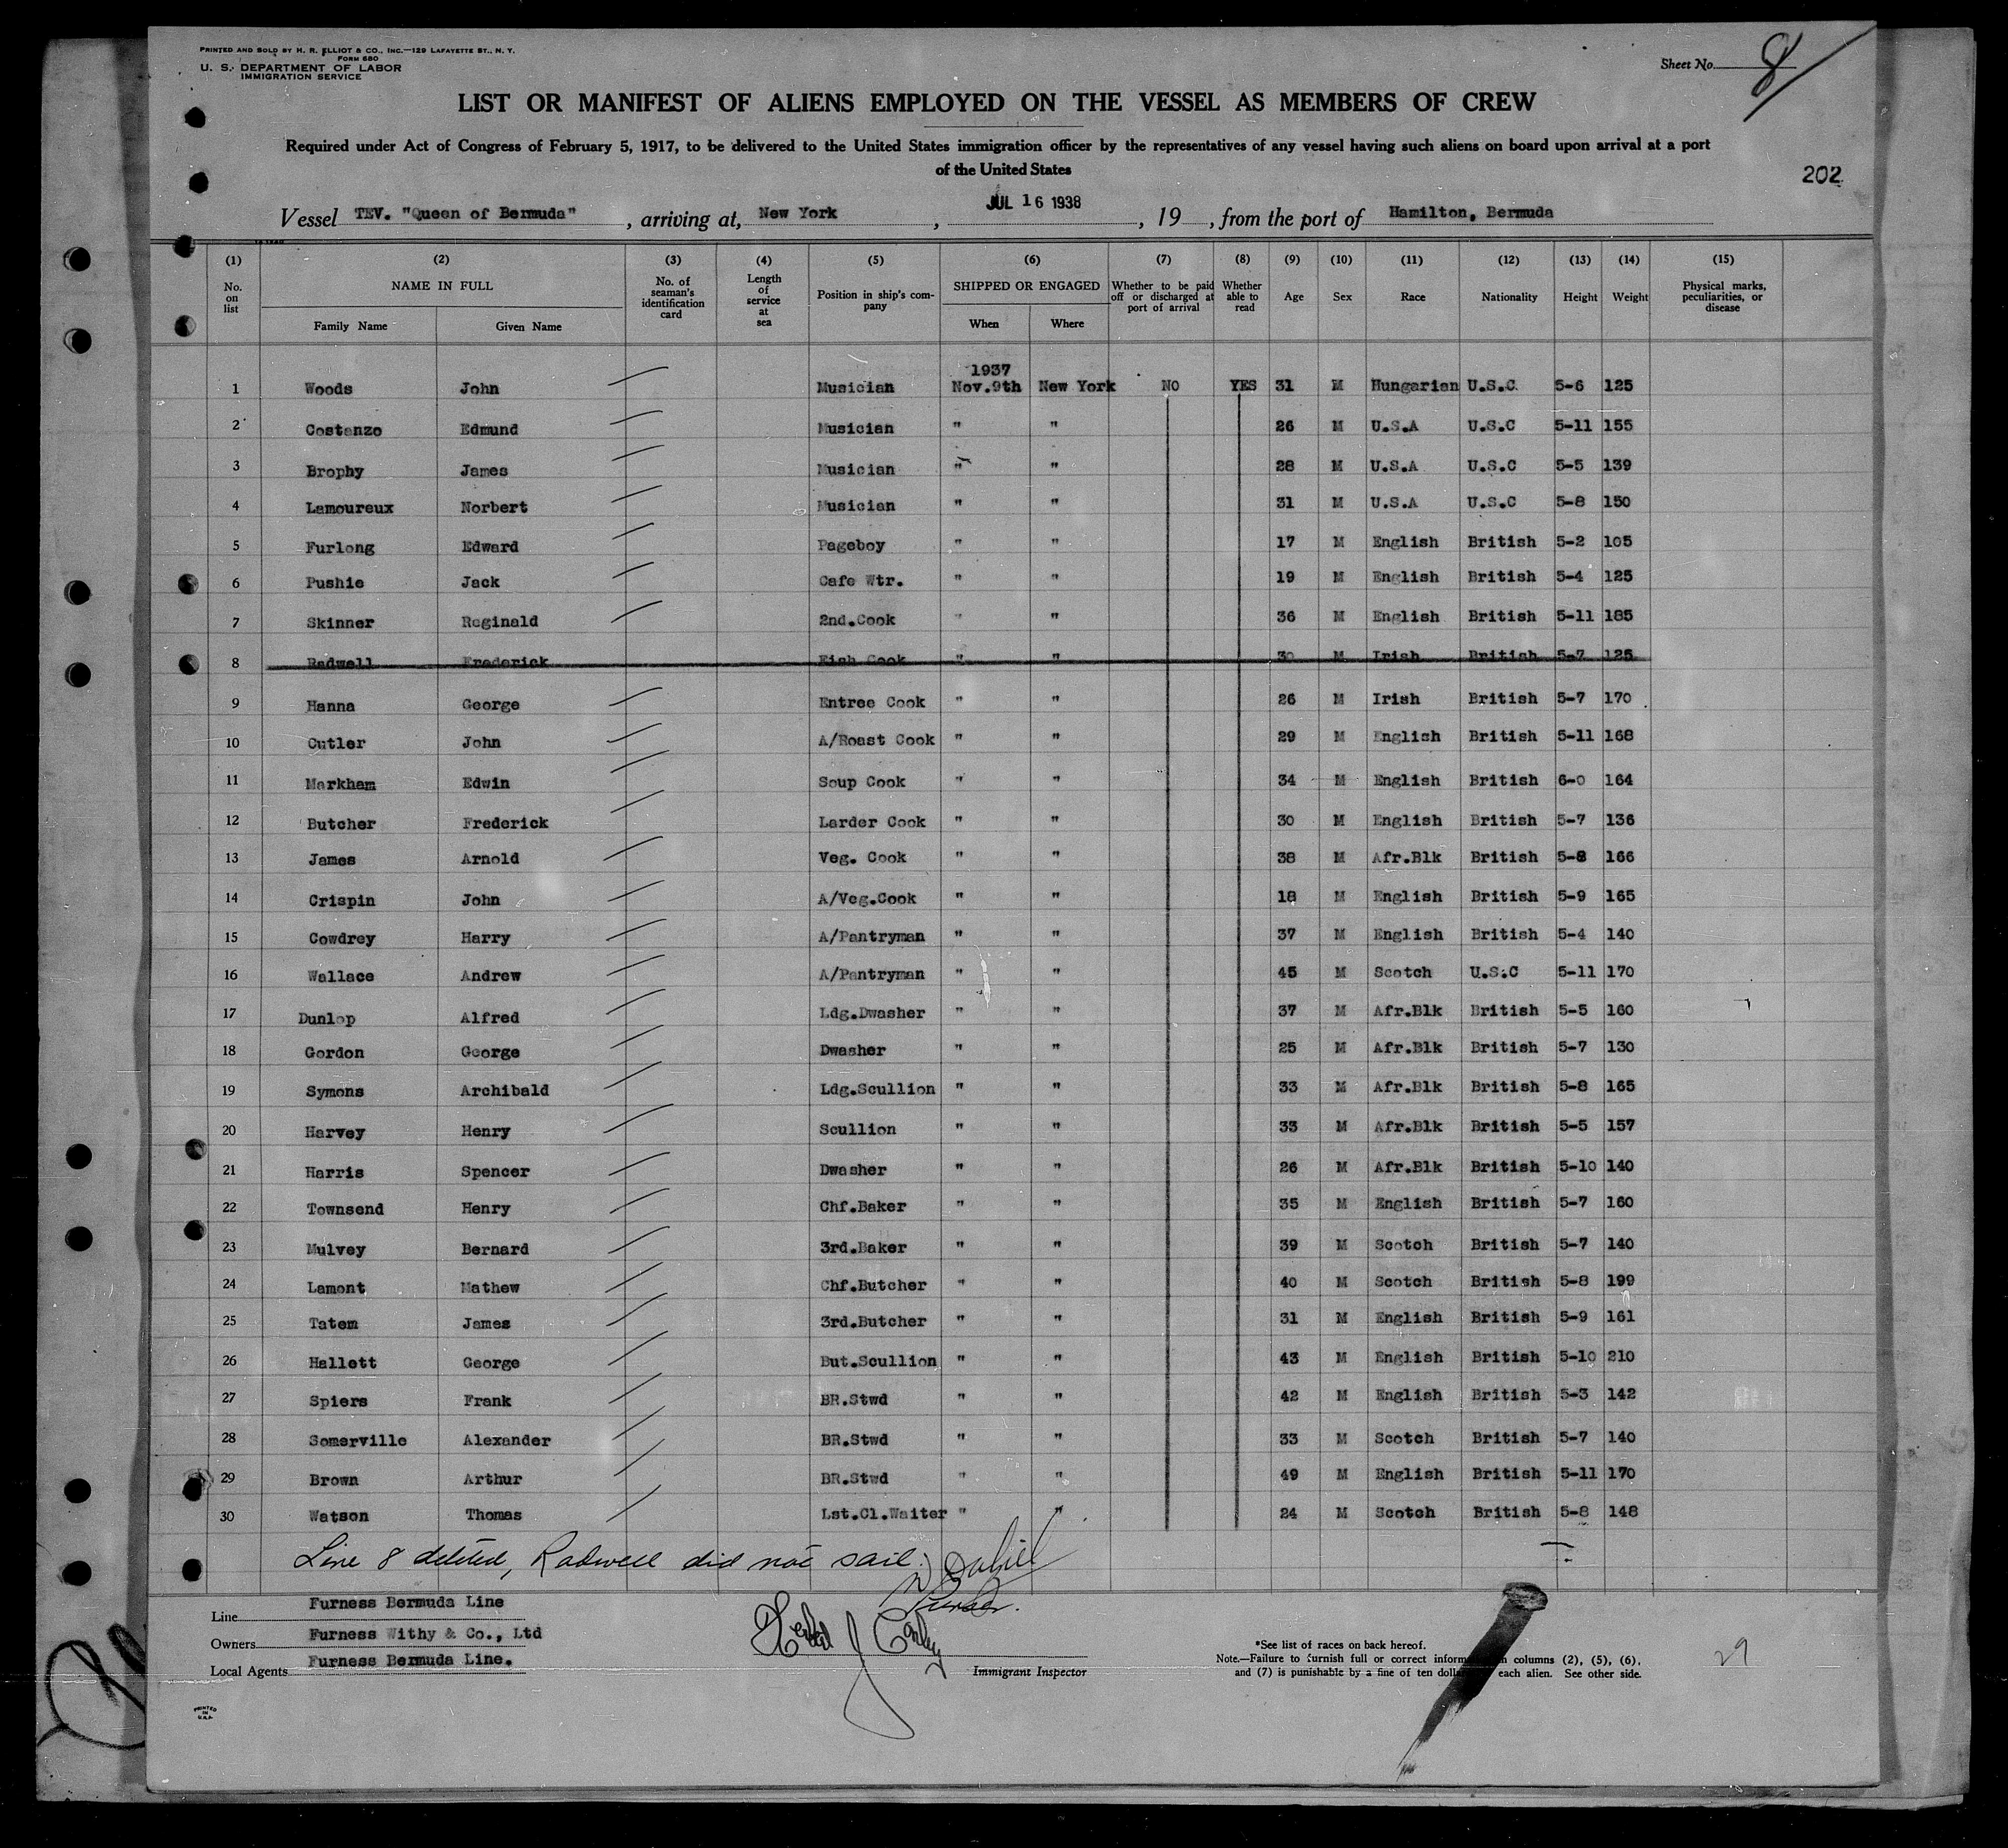 PRINTED AND SOLD BY H. R. ELLIOT & CO., INC.—129 LAFAYETTE ST., N. Y.
FORM 680
U. S. DEPARTMENT OF LABOR
IMMIGRATION SERVICE
Sheet No. 8
LIST OR MANIFEST OF ALIENS EMPLOYED ON THE VESSEL AS MEMBERS OF CREW
Required under Act of Congress of February 5, 1917, to be delivered to the United States immigration officer by the representatives of any vessel having such aliens on board upon arrival at a port
of the United States
202
Vessel TEV. "Queen of Bermuda", arriving at, New York, JUL 16 1938, 19 , from the port of Hamilton, Bermuda
(1) (2) (3) (4) (5) (6) (7) (8) (9) (10) (11) (12) (13) (14) (15)
No. on list NAME IN FULL Family Name Given Name No. of seaman's identification card Length of service at sea Position in ship's company SHIPPED OR ENGAGED When Where Whether to be paid off or discharged at port of arrival Whether able to read Age Sex Race Nationality Height Weight Physical marks, peculiarities, or disease
1937
1 Woods John Musician Nov.9th New York NO YES 31 M Hungarian U.S.C. 5-6 125
2 Costanzo Edmund Musician " " 26 M U.S.A U.S.C 5-11 155
3 Brophy James Musician " " 28 M U.S.A U.S.C 5-5 139
4 Lamoureux Norbert Musician " " 31 M U.S.A U.S.C 5-8 150
5 Furlong Edward Pageboy " " 17 M English British 5-2 105
6 Pushie Jack Cafe Wtr. " " 19 M English British 5-4 125
7 Skinner Reginald 2nd.Cook " " 36 M English British 5-11 185
8 Radwell Frederick Fish Cook " " 30 M Irish British 5-7 125
9 Hanna George Entree Cook " " 26 M Irish British 5-7 170
10 Cutler John A/Roast Cook " " 29 M English British 5-11 168
11 Markham Edwin Soup Cook " " 34 M English British 6-0 164
12 Butcher Frederick Larder Cook " " 30 M English British 5-7 136
13 James Arnold Veg. Cook " " 38 M Afr.Blk British 5-8 166
14 Crispin John A/Veg.Cook " " 18 M English British 5-9 165
15 Cowdrey Harry A/Pantryman " " 37 M English British 5-4 140
16 Wallace Andrew A/Pantryman " " 45 M Scotch U.S.C 5-11 170
17 Dunlop Alfred Ldg.Dwasher " " 37 M Afr.Blk British 5-5 160
18 Gordon George Dwasher " " 25 M Afr.Blk British 5-7 130
19 Symons Archibald Ldg.Scullion " " 33 M Afr.Blk British 5-8 165
20 Harvey Henry Scullion " " 33 M Afr.Blk British 5-5 157
21 Harris Spencer Dwasher " " 26 M Afr.Blk British 5-10 140
22 Townsend Henry Chf.Baker " " 35 M English British 5-7 160
23 Mulvey Bernard 3rd.Baker " " 39 M Scotch British 5-7 140
24 Lamont Mathew Chf.Butcher " " 40 M Scotch British 5-8 199
25 Tatem James 3rd.Butcher " " 31 M English British 5-9 161
26 Hallett George But.Scullion " " 43 M English British 5-10 210
27 Spiers Frank BR.Stwd " " 42 M English British 5-3 142
28 Somerville Alexander BR.Stwd " " 33 M Scotch British 5-7 140
29 Brown Arthur BR.Stwd " " 49 M English British 5-11 170
30 Watson Thomas Lst.Cl.Waiter " " 24 M Scotch British 5-8 148
Line 8 deleted, Radwell did not sail.
Purser.
Line Furness Bermuda Line
Owners Furness Withy & Co., Ltd
Local Agents Furness Bermuda Line.
Immigrant Inspector
*See list of races on back hereof.
Note.—Failure to furnish full or correct columns (2), (5), (6),
and (7) is punishable by a fine of ten each alien. See other side.
29
PRINTED
IN
U.S.A.